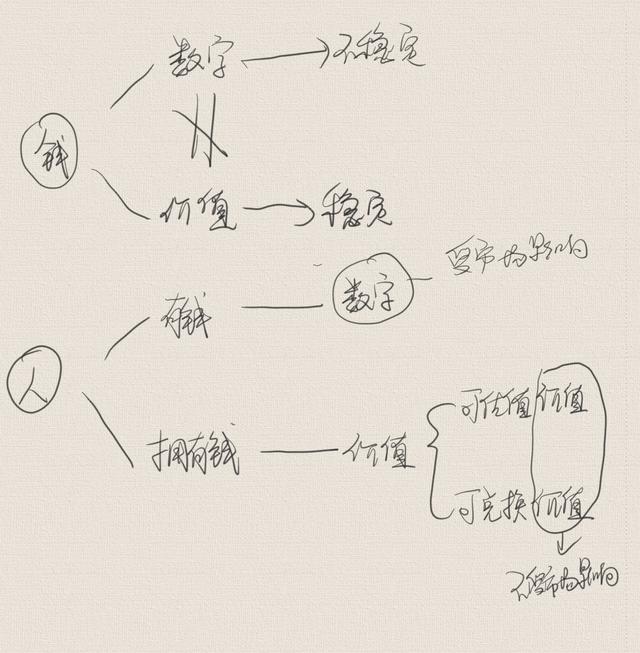 数字 → 不稳定
钱
价值 → 稳定
受市场影响
有钱 — 数字
人
可估值价值
拥有钱 — 价值
可兑换价值
不受市场影响